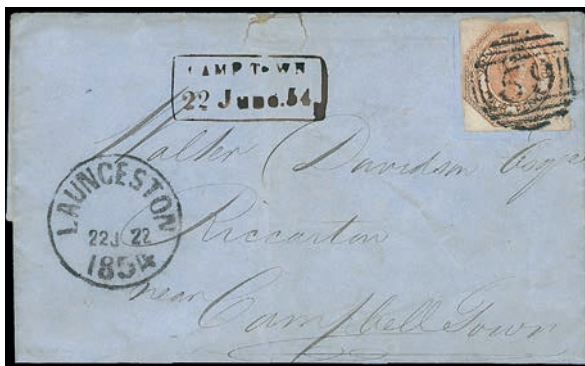 CAMP TOWN
22 June.54
59
Walter Davidson Esqre
Riccarton
near
Campbell Town
LAUNCESTON
22J 22
1854